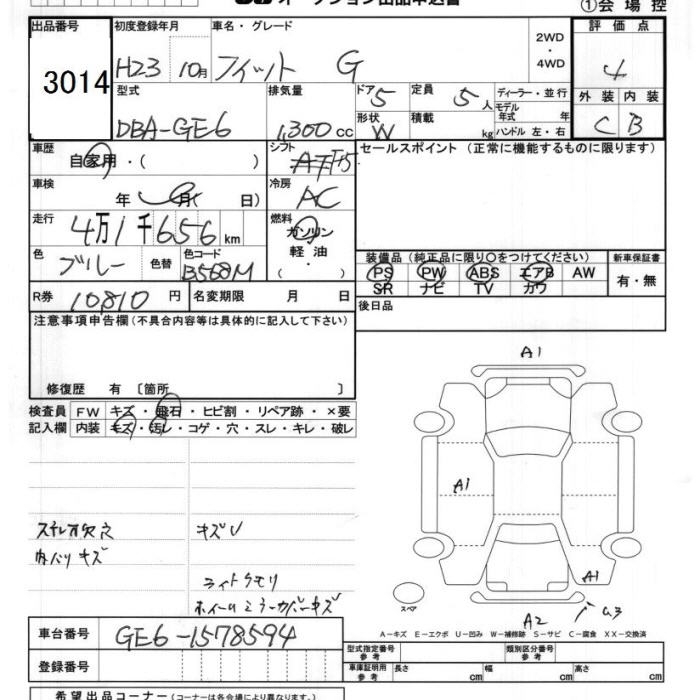 オークション出品申込書
①会場控
出品番号 初度登録年月 車名・グレード 2WD・4WD 評価点
3014 H23 10月 フィット G 4
型式 排気量 ドア 定員 ディーラー・並行 外装 内装
DBA-GE6 1,300cc 5 5人 モデル年式 年 C B
形状 積載 ハンドル 左・右
W kg
車歴 自家用・( ) シフト セールスポイント (正常に機能するものに限ります)
車検 年 月( 日) 冷房 AC
走行 4万1千656km 燃料 ガソリン・軽油・( )
色 ブルー 色替 色コード B568M
装備品 (純正品に限り○をつけてください) 新車保証書
PS PW ABS エアB AW 有・無
SR ナビ TV カワ
R券 10,810円 名変期限 月 日 後日品
注意事項申告欄 (不具合内容等は具体的に記入して下さい)
修復歴 有 〔箇所 〕
検査員 FW キズ・飛石・ヒビ割・リペア跡・×要
記入欄 内装 キズ・汚レ・コゲ・穴・スレ・キレ・破レ
A1
A1
A1
A2
スペア
ステレオ欠穴 キズU
内ハリキズ
ライトクモリ
ホイール ミラーカバーキズ
A-キズ E-エクボ U-凹み W-補修跡 S-サビ C-腐食 XX-交換済
車台番号 GE6-1578594
登録番号
型式指定番号 参考 類別区分番号 参考
車庫証明用 参考 長さ cm 幅 cm 高さ cm
希望出品コーナー (コーナーは各会場により異なります。)